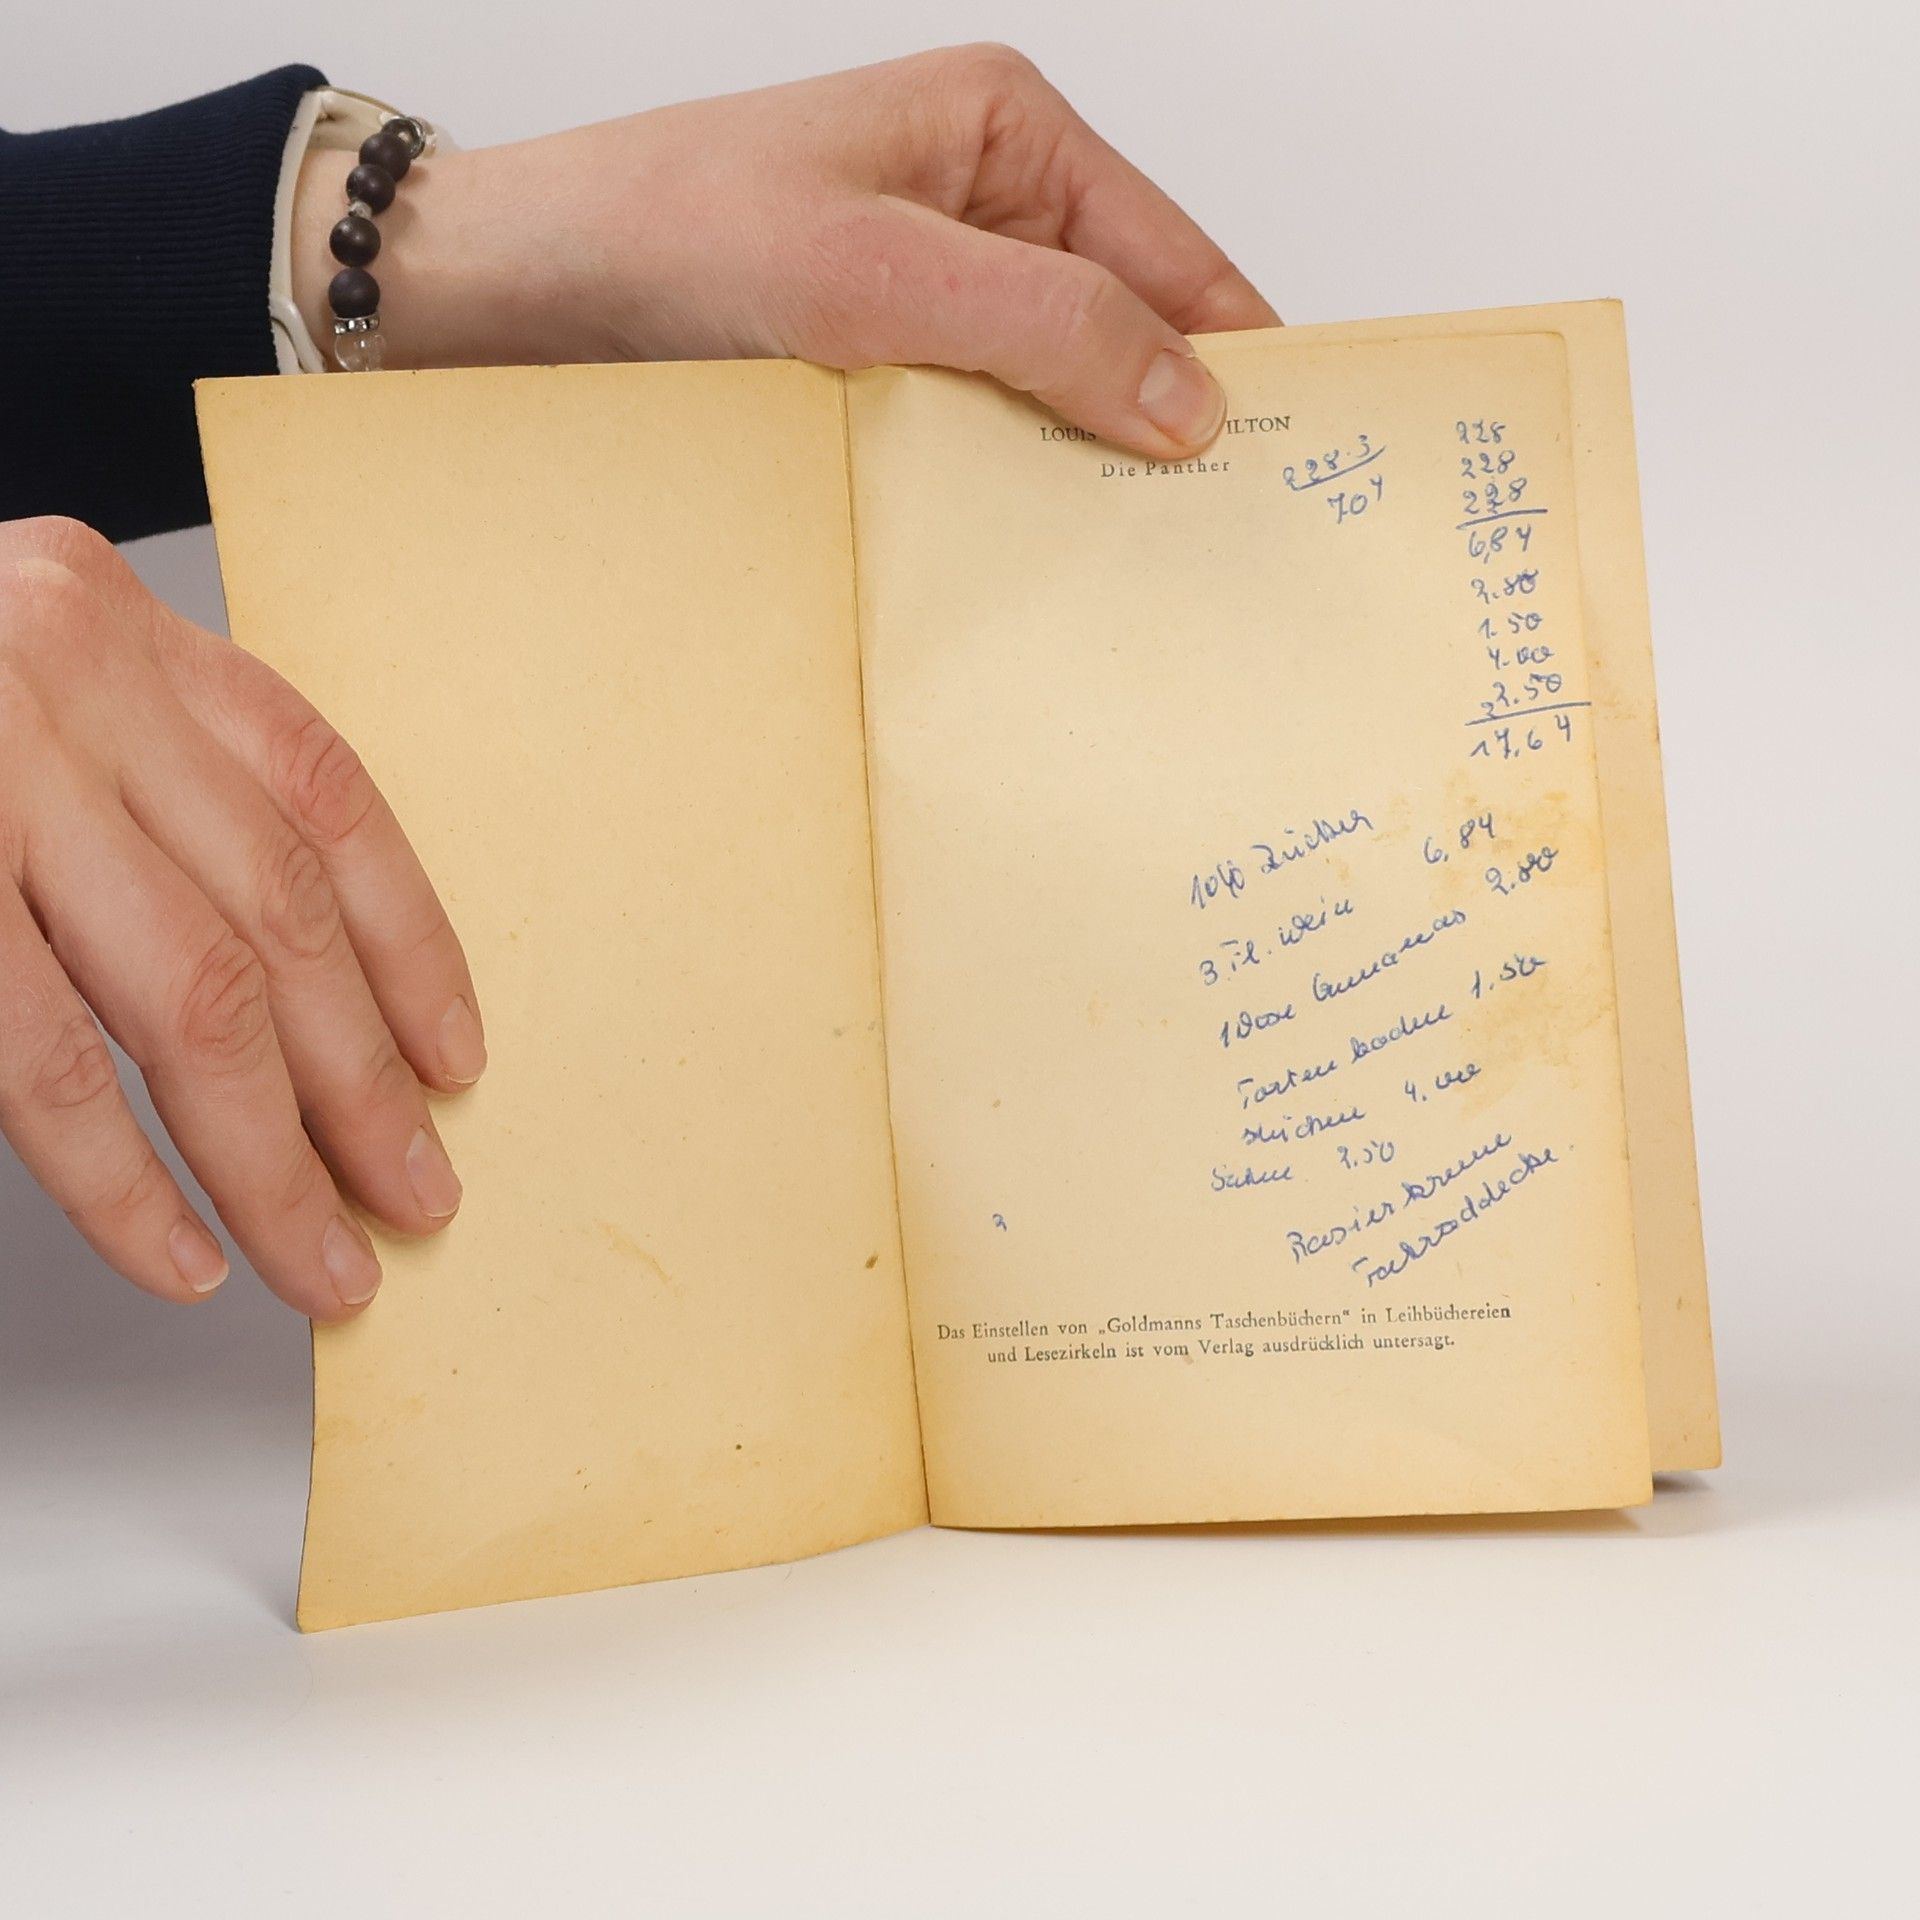 LOUIS ILTON
Die Panther
228.3
704
228
228
228
6,84
2.80
1.50
4.00
2.50
17.64
Zucker
3 Fl. Wein 6,84
1 Dose Annanas 2.80
Tortenboden 1.50
4.00
Sahne 2.50
Rasierkreme
Fahrraddecke.
2
Das Einstellen von „Goldmanns Taschenbüchern“ in Leihbüchereien
und Lesezirkeln ist vom Verlag ausdrücklich untersagt.